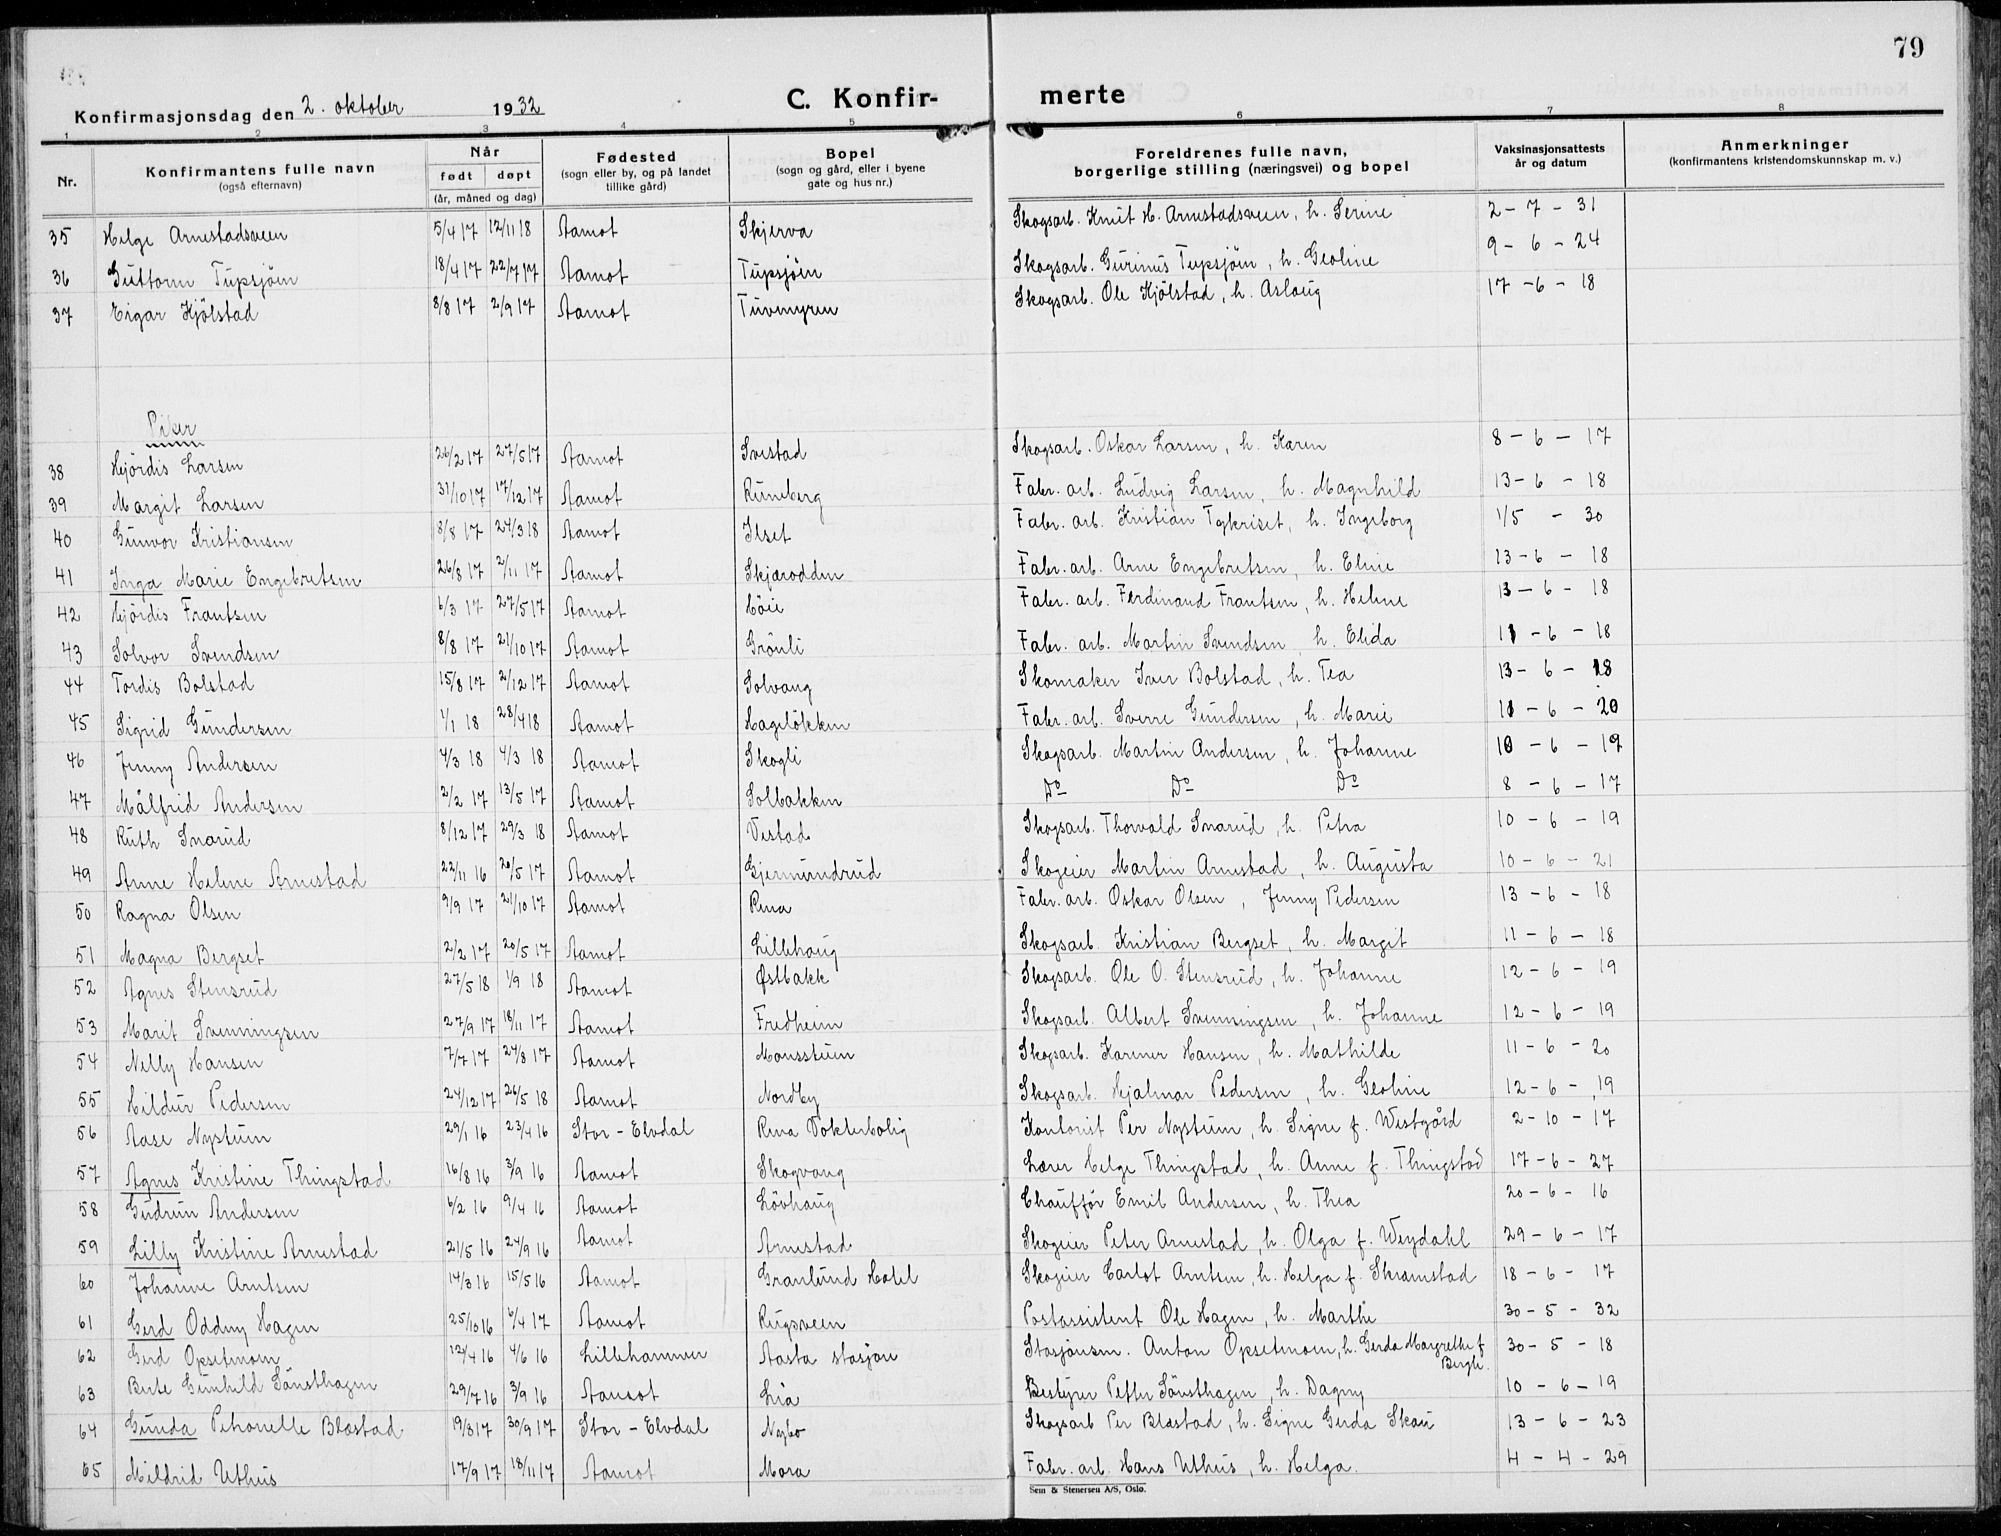 79
Konfirmasjonsdag den 2. oktober 1932 C. Konfir- merte
1 2 3 4 5 6 7 8
Nr. Konfirmantens fulle navn (også efternavn) Når født døpt (år, måned og dag) Fødested (sogn eller by, og på landet tillike gård) Bopel (sogn og gård, eller i byene gate og hus nr.) Foreldrenes fulle navn, borgerlige stilling (næringsvei) og bopel Vaksinasjonsattests år og datum Anmerkninger (konfirmantens kristendomskunnskap m. v.)
35 Helge Arnestadsveen 5/4 17 12/11 18 Aamot Skjerva Skogsarb. Knut H. Arnestadsveen, h. Serine 2 - 7 - 31
36 Guttorm Tupsjöen 18/4 17 22/7 17 Aamot Tupsjöen Skogsarb. Gurinus Tupsjöen, h. Geoline 9 - 6 - 24
37 Eigar Kjölstad 8/8 17 2/9 17 Aamot Tuvmyren Skogsarb. Ole Kjölstad, h. Aslaug 17 - 6 - 18
Piker
38 Hjördis Larsen 26/2 17 27/5 17 Aamot Svestad Skogsarb. Oskar Larsen, h. Karen 8 - 6 - 17
39 Margit Larsen 31/10 17 17/12 17 Aamot Runeberg Fabr. arb. Ludvig Larsen, h. Magnhild 13 - 6 - 18
40 Gunvor Kristiansen 8/8 17 24/3 18 Aamot Ilset Fabr. arb. Kristian Tykriset, h. Ingeborg 1/5 - 30
41 Inga Marie Engebretsen 26/8 17 2/11 17 Aamot Skjærodden Fabr. arb. Arne Engebretsen, h. Eline 13 - 6 - 18
42 Hjördis Frantsen 6/3 17 27/5 17 Aamot Höie Fabr. arb. Ferdinand Frantsen, h. Helene 13 - 6 - 18
43 Solvor Svendsen 8/8 17 21/10 17 Aamot Grönli Fabr. arb. Martin Svendsen h. Elida 11 - 6 - 18
44 Tordis Bolstad 15/8 17 2/12 17 Aamot Solvang Skomaker Iver Bolstad, h. Tea 13 - 6 - 18
45 Sigrid Gundersen 1/1 18 28/4 18 Aamot Hagelökken Fabr. arb. Sverre Gundersen, h. Marie 11 - 6 - 20
46 Jenny Andersen 4/3 18 4/3 18 Aamot Skogli Skogsarb. Martin Andersen, h. Johanne 10 - 6 - 19
47 Målfrid Andersen 2/2 17 13/5 17 Aamot Solbakken Do Do Do 8 - 6 - 17
48 Ruth Snarud 8/12 17 29/3 18 Aamot Vestad Skogsarb. Thorvald Snarud, h. Petra 10 - 6 - 19
49 Anne Helene Arnestad 22/11 16 20/5 17 Aamot Gjermundrud Skogeier Martin Arnestad, h. Augusta 10 - 6 - 21
50 Ragna Olsen 9/9 17 21/10 17 Aamot Rena Fabr. arb. Oskar Olsen, Jenny Pedersen 13 - 6 - 18
51 Magna Bergset 2/2 17 20/5 17 Aamot Lillehaug Skogsarb. Kristian Bergset, h. Margit 11 - 6 - 18
52 Agnes Stensrud 27/5 18 1/9 18 Aamot Østbakk Skogsarb. Ole O. Stensrud, h. Johanne 12 - 6 - 19
53 Marit Svenningsen 27/9 17 18/11 17 Aamot Fredheim Skogsarb. Albert Svenningsen, h. Johanne 12 - 6 - 19
54 Nelly Hansen 7/7 17 24/8 17 Aamot Monsstuen Skogsarb. Karener Hansen, h. Mathilde 11 - 6 - 20
55 Hildur Pedersen 24/12 17 26/5 18 Aamot Nordby Skogsarb. Hjalmar Pedersen, h. Geoline 12 - 6 - 19
56 Aase Nystuen 29/1 16 23/4 16 Stor-Elvdal Rena Vokterbolig Kontorist Per Nystuen, h. Signe f. Westgård 2 - 10 - 17
57 Agnes Kristine Thingstad 16/8 16 3/9 16 Aamot Skogvang Lærer Helge Thingstad, h. Anne f. Thingstad 17 - 6 - 27
58 Gudrun Andersen 6/2 16 9/4 16 Aamot Lövhaug Chaufför Emil Andersen, h. Thea 20 - 6 - 16
59 Lilly Kristine Arnestad 21/5 16 24/9 16 Aamot Arnestad Skogeier Peter Arnestad, h. Olga f. Weydahl 29 - 6 - 17
60 Johanne Arntsen 14/3 16 15/5 16 Aamot Granlund Hotel Skogeier Carlot Arntsen, h. Helga f. Skramstad 18 - 6 - 17
61 Gerd Oddny Hagen 25/10 16 6/4 17 Aamot Rugsveen Postassistent Ole Hagen, h. Marthe 30 - 5 - 32
62 Gerd Opsetmoen 12/4 16 4/6 16 Lillehammer Aasta stasjon Stasjonsm. Anton Opsetmoen, h. Gerda Margrethe f. Bergli. 30 - 5 - 18
63 Berte Gunhild Sönsthagen 29/7 16 3/9 16 Aamot Lia Bestyrer Petter Sönsthagen, h. Dagny 10 - 6 - 19
64 Gunda Petronelle Blæstad 19/8 17 30/9 17 Stor-Elvdal Nybo Skogsarb Per Blæstad, h. Signe Gerda Skau 13 - 6 - 23
65 Mildrid Uthus 17/9 17 18/11 17 Aamot Mora Fabr. arb. Hans Uthus, h. Helga. 4 - 4 - 29
Sem & Stenersen A/S, Oslo.